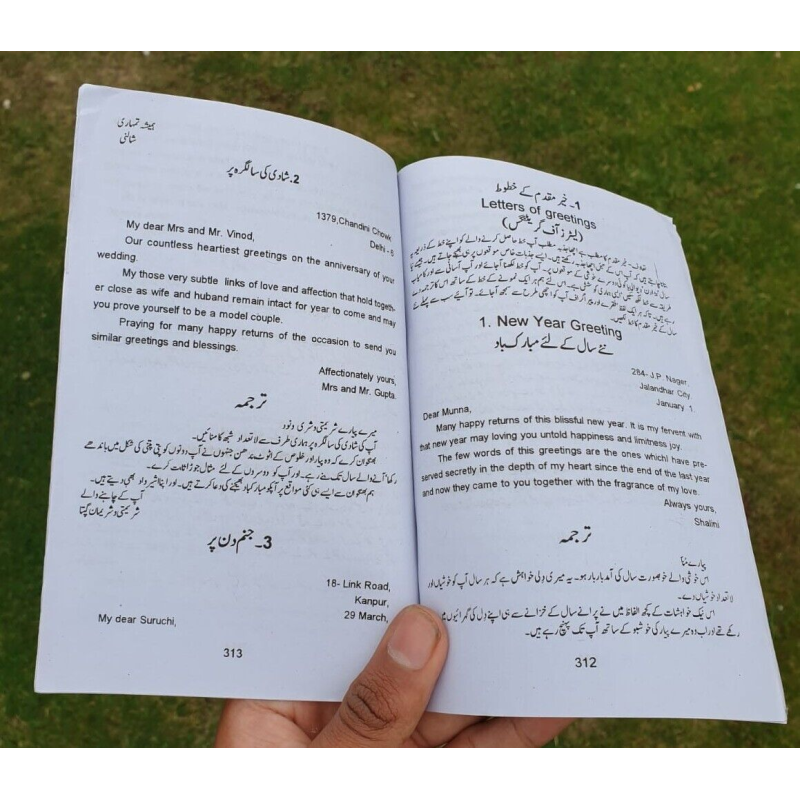 1۔ خیر مقدم کے خطوط
Letters of greetings
(لیٹرز آف گریٹنگس)
1. New Year Greeting
نئے سال کے لئے مبارک باد
284- J.P. Nager,
Jalandhar City
January 1.
Dear Munna,
Many happy returns of this blissful new year. It is my fervent with
that new year may loving you untold happiness and limitness joy.
The few words of this greetings are the ones whichI have pre-
served secretly in the depth of my heart since the end of the last year
and now they came to you together with the fragrance of my love.
Always yours,
Shalini
ترجمہ
پیارے منا
اس خوشی والے خوبصورت سال کی آمد باربار ہو۔ یہ میری دلی خواہش ہے کہ ہر سال آپ کو خوشیاں اور
لاتعداد خوشیاں دے۔
اس نیک خواہشات کے کچھ الفاظ میں نے پرانے سال کے خزانے سے ہی اپنے دل کی گہرائیوں میں
رکھے تھے اور اب وہ میرے پیار کی خوشبو کے ساتھ آپ تک پہنچ رہے ہیں۔
312
ہمیشہ تمہاری
شالنی
2۔ شادی کی سالگرہ پر
1379,Chandini Chowk
Delhi - 6
My dear Mrs and Mr. Vinod,
Our countless heartiest greetings on the anniversary of your
wedding.
My those very subtle links of love and affection that hold togeth-
er close as wife and huband remain intact for year to come and may
you prove yourself to be a model couple.
Praying for many happy returns of the occasion to send you
similar greetings and blessings.
Affectionately yours,
Mrs and Mr. Gupta.
ترجمہ
میرے پیارے شریمتی و شری ونود
آپ کی شادی کی سالگرہ پر ہماری طرف سے لاتعداد شبھ کامنائیں۔
بھگوان کرے کہ وہ پیار اور خلوص کے اٹوٹ بندھن جنہوں نے آپ دونوں کو پتی پتنی کی شکل میں باندھے
رکھا آنے والے سال تک بنے رہے۔ اور آپ کو دوسروں کے لئے مثال جوڑا ثابت کرے۔
ہم بھگوان سے ایسے ہی کئی مواقع پر آپکو مبارکباد بھیجنے کی دعا کرتے ہیں۔ اور اپنا اشیر واد بھی دیتے ہیں۔
آپ کے چاہنے والے
شریمتی و شریمان گپتا
3۔ جنم دن پر
18- Link Road,
Kanpur,
29 March,
My dear Suruchi,
313